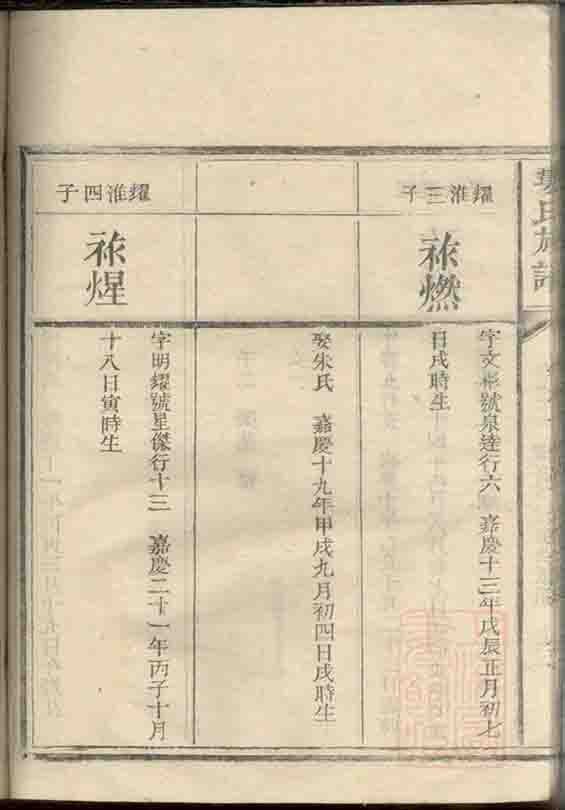 氏族譜
耀淮三子
燃
字文彬號泉達行六 嘉慶十三年戊辰正月初七
日戌時生
娶朱氏 嘉慶十九年甲戌九月初四日戌時生
耀淮四子
煋
字明耀號星傑行十三 嘉慶二十一年丙子十月
十八日寅時生